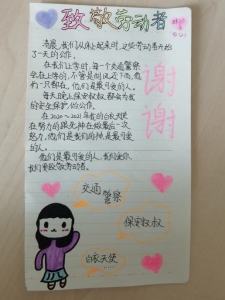 致敬劳动者
凌晨,我们从床上起来时,这些劳动者开始
了一天的工作。
在我们上学时,每一个交通警察
会在上学的,不管是刮风还下雨,他
们一只都在,他们是最可爱的人。
每天晚上保安叔叔,都会为我
的安全保护,做公作。
在2020~2021年我的白衣天使
在努力的跟死神在做最后一次
努力,他们是我们的神,是最可爱
的人。
他们是最可爱的人,我们爱你,
我们要致敬劳动者。
谢
谢
交通
警察
保安叔叔
白衣天使